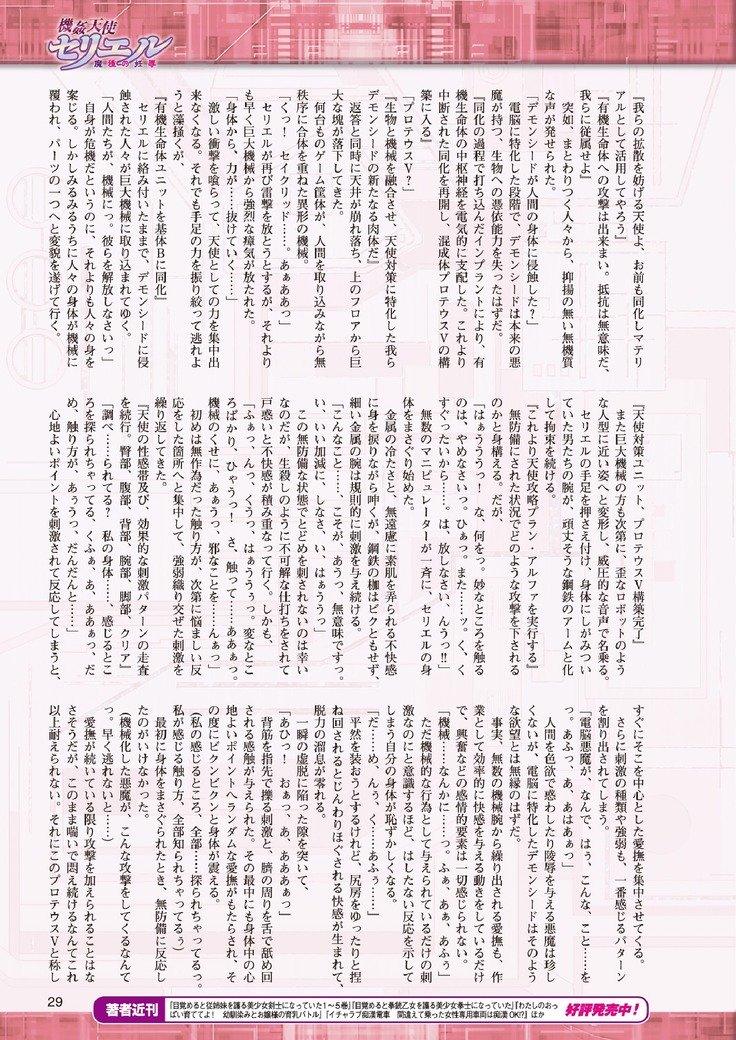 機姦天使
セリエル
魔種の妊辱
『我らの拡散を妨げる天使よ、お前も同化しマテリ
アルとして活用してやろう』
『有機生命体への攻撃は出来まい。抵抗は無意味だ、
我らに従属せよ』
突如、まとわりつく人々から、抑揚の無い無機質
な声が発せられた。
「デモンシードが人間の身体に侵蝕した？」
電脳に特化した段階で、デモンシードは本来の悪
魔が持つ、生物への憑依能力を失ったはずだ。
『同化の過程で打ち込んだインプラントにより、有
機生命体の中枢神経を電気的に支配した。これより
中断された同化を再開し、混成体プロテウスVの構
築に入る』
「プロテウスV？」
『生物と機械を融合させ、天使対策に特化した我ら
デモンシードの新たなる肉体だ』
返答と同時に天井が崩れ落ち、上のフロアから巨
大な塊が落下してきた。
何台ものゲーム筐体が、人間を取り込みながら無
秩序に合体を重ねた異形の機械。
「くっ！　セイクリッド……。あぁああっ」
セリエルが再び雷撃を放とうとするが、それより
も早く巨大機械から強烈な瘴気が放たれた。
「身体から、力が……抜けていく……」
激しい衝撃を喰らって、天使としての力を集中出
来なくなる。それでも手足の力を振り絞って逃れよ
うと藻掻くが、
『有機生命体ユニットを基体Bに同化』
セリエルに絡み付いたままで、デモンシードに侵
蝕された人々が巨大機械に取り込まれてゆく。
「人間たちが、機械にっ。彼らを解放しなさいっ」
自身が危機だというのに、それよりも人々の身を
案じる。しかしみるみるうちに人々の身体が機械に
覆われ、パーツの一つへと変貌を遂げて行く。
『天使対策ユニット、プロテウスV構築完了』
また巨大機械の方も次第に、歪なロボットのよう
な人型に近い姿へと変形し、威圧的な音声で名乗る。
セリエルの手足を押さえ付け、身体にしがみつい
ていた男たちの腕が、頑丈そうな鋼鉄のアームと化
して拘束を続ける。
『これより天使攻略プラン・アルファを実行する』
無防備にされた状況でどのような攻撃を下される
のかと身構える。だが、
「はぁうううっ！　な、何をっ。妙なところを触る
のは、やめなさいっ。ひぁっ。また……ッ。く、く
すぐったいから……。は、放しなさい、んうっ!!」
無数のマニピュレーターが一斉に、セリエルの身
体をまさぐり始めた。
金属の冷たさと、無遠慮に素肌を弄られる不快感
に身を捩りながら呻くが、鋼鉄の枷はビクともせず、
細い金属の腕は規則的に刺激を与え続ける。
「こんなこと……、こそが、あうっ、無意味ですっ。
い、いい加減に、しなさ、い、はぁううっ」
この無防備な状態でとどめを刺されないのは幸い
なのだが、生殺しのように不可解な仕打ちをされて
戸惑いと不快感が積み重なって行く。しかも、
「ふぁっ、んっ、くうっ、はぁううっ。変なとこ
ろばかり、ひゃうっ！　さ、触って……ああぁっ。
機械のくせに、あぁうっ、邪なことを……んぁっ」
初めは無作為だった触り方が、次第に悩ましい反
応をした箇所へと集中して、強弱織り交ぜた刺激を
繰り返してきた。
『天使の性感帯及び、効果的な刺激パターンの走査
を続行。臀部、腹部、背部、腕部、脚部、クリア』
「調べ……られてる？　私の身体……、感じるとこ
ろを探られちゃってる、くふぁ、あ、ああぁっ、だ
め、触り方が、あぅうっ、だんだんと……」
心地よいポイントを刺激されて反応してしまうと、
すぐにそこを中心とした愛撫を集中させてくる。
さらに刺激の種類や強弱も、一番感じるパターン
を割り出されてしまう。
「電脳悪魔が、なんで、はぅ、こんな、こと……を
っ。あふっ、あ、あはあぁっ」
人間を色欲で惑わしたり陵辱を与える悪魔は珍し
くないが、電脳に特化したデモンシードはそのよう
な欲望とは無縁のはずだ。
事実、無数の機械腕から繰り出される愛撫も、作
業として効率的に快感を与える動きをしているだけ
で、興奮などの感情的要素は一切感じられない。
「機械……なんかに……っ。ふぁ、あぁ、あふぅ」
ただ機械的な行為として与えられているだけの刺
激なのにと意識するほど、はしたない反応を示して
しまう自分の身体が恥ずかしくなる。
「だ……め、んぅ、く……あふぅ……」
平然を装おうとするけれど、尻房をゆったりと捏
ね回されるとじんわりほぐされる快感が生まれて、
脱力の溜息が零れる。
一瞬の虚脱に陥った隙を突いて、
「あひっ！　おぁっ、あ、あああぁっ」
背筋を指先で擽る刺激と、臍の周りを舌で舐め回
される感触が与えられた。その最中にも身体中の心
地よいポイントへランダムな愛撫がもたらされ、そ
の度にビクンビクンと身体が震える。
（私の感じるところ、全部……探られちゃってるっ。
私が感じる触り方、全部知られちゃってるぅ）
最初に身体をまさぐられたとき、無防備に反応し
たのがいけなかった。
（機械化した悪魔が、こんな攻撃をしてくるなんて
っ。早く逃れないと……）
愛撫が続いている限り攻撃を加えられることはな
さそうだが、このまま喘いで悶え続けるなんてこれ
以上耐えられない。それにこのプロテウスVと称し
29
著者近刊
「目覚めると従姉妹を護る美少女剣士になっていた1～5巻」「目覚めると拳銃乙女を護る美少女拳士になっていた」「わたしのおっ
ぱい育ててよ！　幼馴染みとお嬢様の育乳バトル」「イチャラブ痴漢電車　間違えて乗った女性専用車両は痴漢OK!?」ほか
好評発売中！